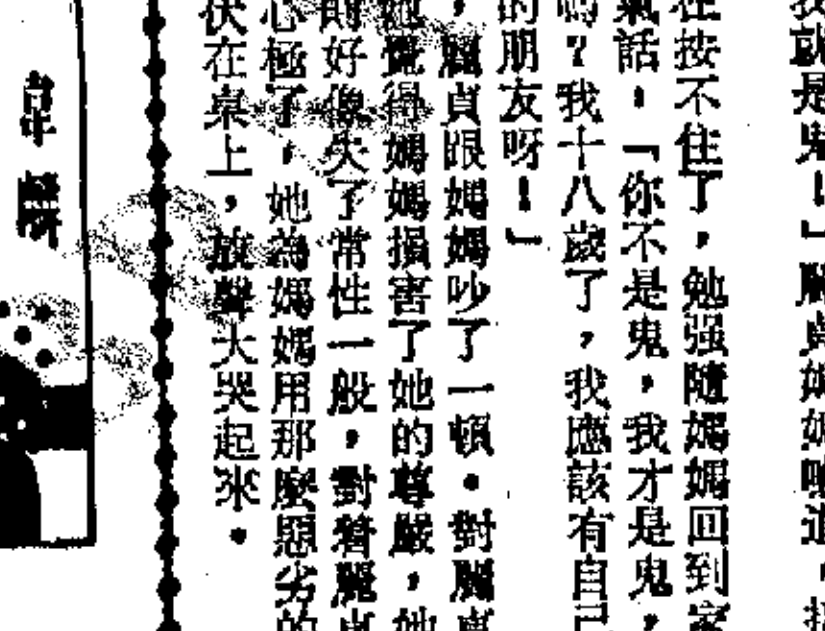 就是鬼!」麗貞媽媽嚷道,
在按不住了,勉强隨媽媽回到家
氣話!「你不是鬼,我才是鬼,
嗎?我十八歲了,我應該有自己
的朋友呀!」
,麗貞跟媽媽吵了一頓。對麗貞
她覺得媽媽損害了她的尊嚴,她
則好像失了常性一般,對着麗貞
心極了,她為媽媽用那麼惡劣的
伏在桌上,放聲大哭起來。